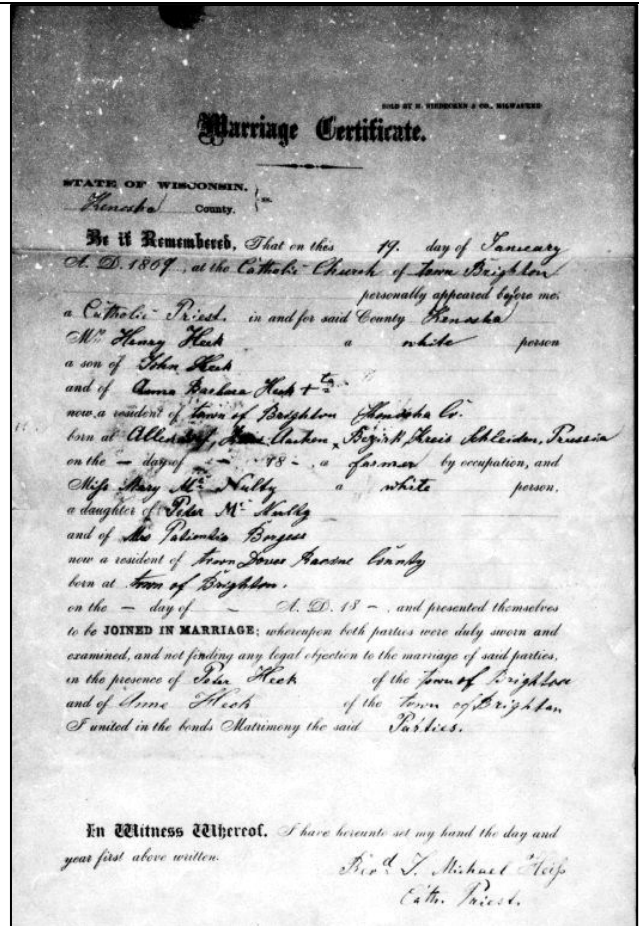 SOLD BY H. NIEDECKEN & CO., MILWAUKEE
Marriage Certificate.
STATE OF WISCONSIN,
Kenosha County. } ss.
Be it Remembered, That on this 19 day of January
A. D. 1869, at the Catholic Church of town Brighton
personally appeared before me,
a Catholic Priest. in and for said County Kenosha
Mr. Henry Heck a white person
a son of John Heck
and of Anna Barbara Heck
now a resident of town of Brighton Kenosha Co.
born at Aachen Bezirk, Kreis Schleiden, Prussia
on the — day of — 18 -, a farmer by occupation, and
Miss Mary Mc Nulty a white person,
a daughter of Peter Mc Nulty
and of Borgess
now a resident of town Dover Racine County
born at town of Brighton.
on the — day of — A. D. 18 -, and presented themselves
to be JOINED IN MARRIAGE; whereupon both parties were duly sworn and
examined, and not finding any legal objection to the marriage of said parties,
in the presence of Peter Heck of the town of Brighton
and of Anna Heck of the town of Brighton
I united in the bonds Matrimony the said Parties.
In Witness Whereof, I have hereunto set my hand the day and
year first above written.
Rev'd Michael Heiss
Cath. Priest.